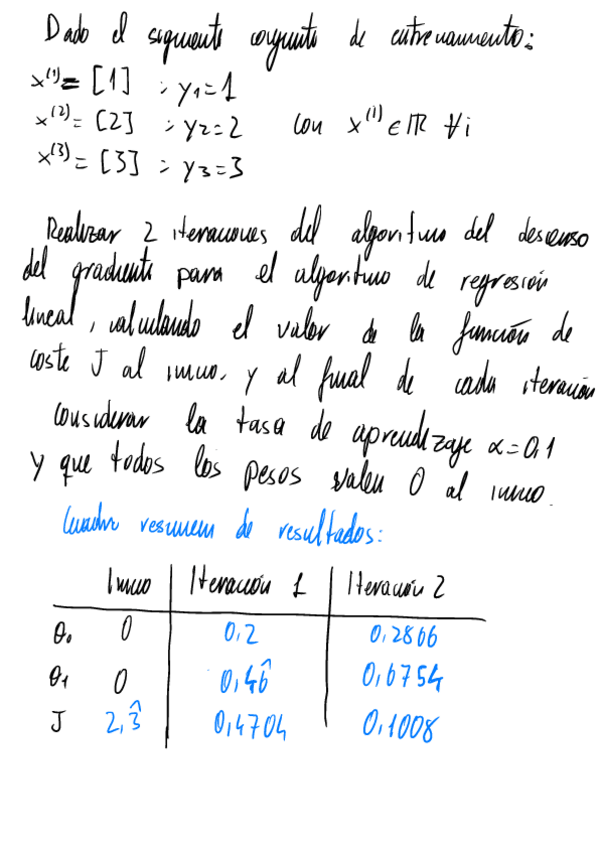 Dado el siguiente conjunto de entrenamiento:
x⁽¹⁾ = [1] ; y₁=1
x⁽²⁾ = [2] ; y₂=2 con x⁽ⁱ⁾ ∈ ℝ ∀i
x⁽³⁾ = [3] ; y₃=3
Realizar 2 iteraciones del algoritmo del descenso
del gradiente para el algoritmo de regresión
lineal, calculando el valor de la función de
coste J al inicio, y al final de cada iteración
Considerar la tasa de aprendizaje α=0,1
y que todos los pesos valen 0 al inicio.
Cuadro resumen de resultados:
Inicio Iteración 1 Iteración 2
θ₀ 0 0,2 0,2866
θ₁ 0 0,46̂ 0,6754
J 2,3̂ 0,4704 0,1008